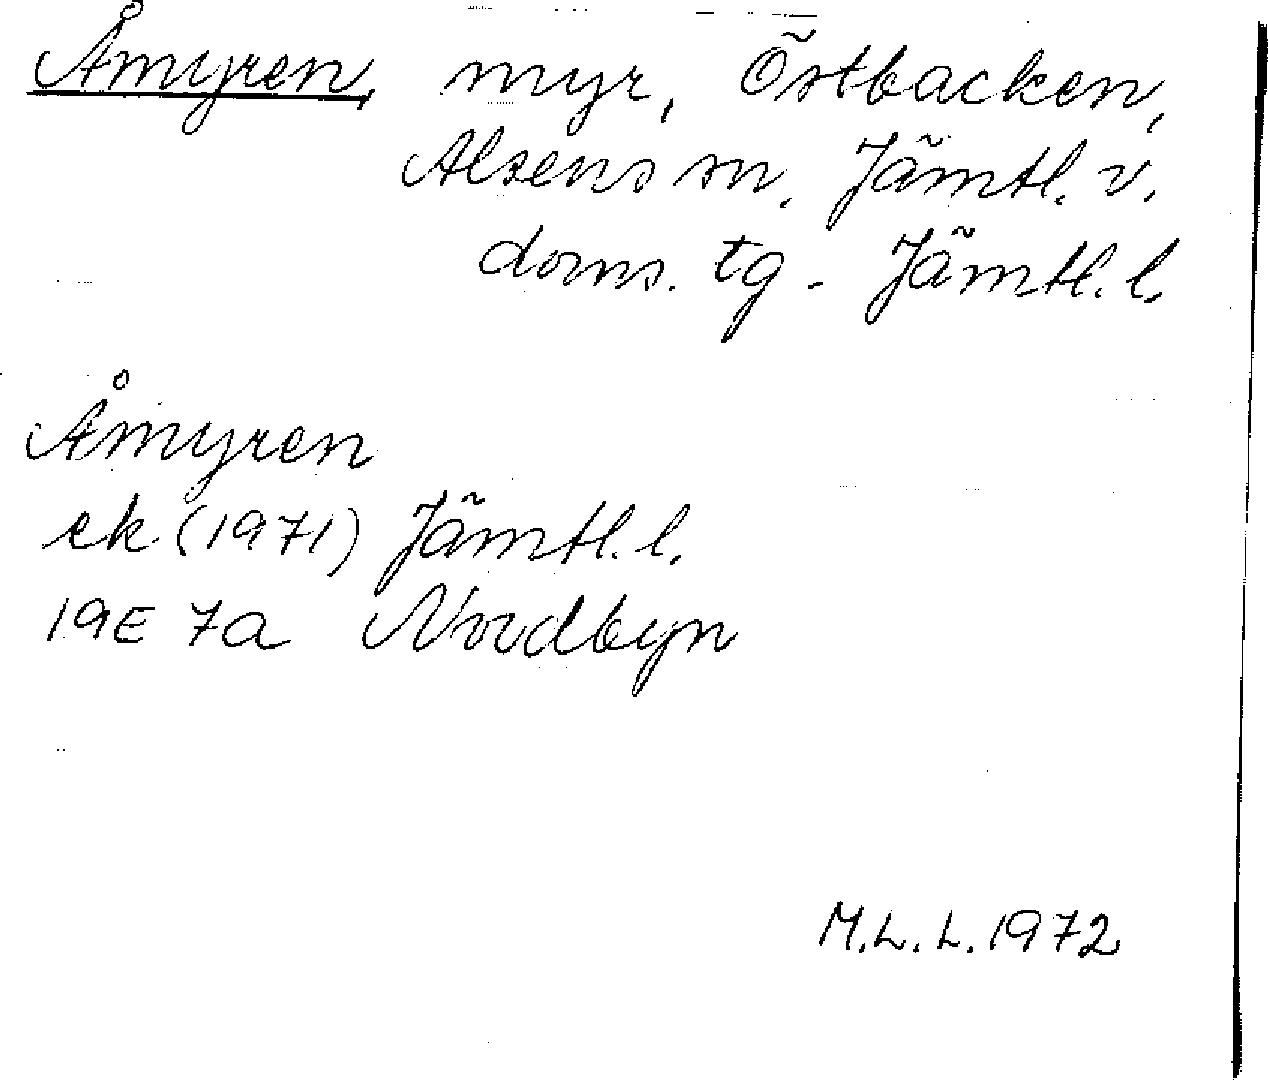 Åmyren, myr, Östbacken,
Alsens sn, Jämtl. v.
doms. tg. Jämtl. l.
Åmyren
ek (1971) Jämtl. l.
19E 7a Nordbyn
M.L.L. 1972